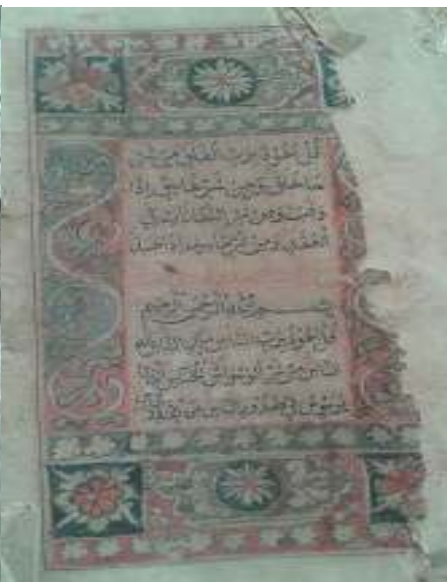 قل اعوذ برب الفلق من شر
ما خلق ومن شر غاسق اذا
وقب ومن شر النفاثات في
العقد ومن شر حاسد اذا حسد
بسم الله الرحمن الرحيم
قل اعوذ برب الناس ملك الناس اله
الناس من شر الوسواس الخناس الذي
يوسوس في صدور الناس من الجنة و